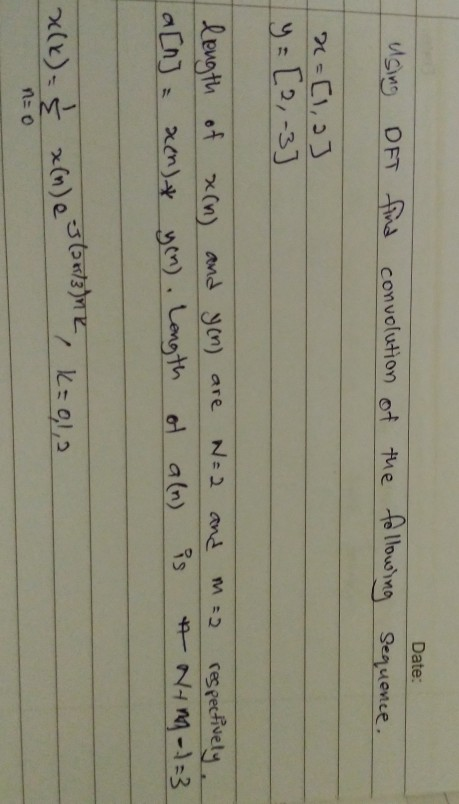 Date:
Using DFT find convolution of the following sequence.
x = [1, 2]
y = [2, -3]
Length of x(n) and y(n) are N=2 and M=2 respectively.
a[n] = x(n) * y(n). Length of a(n) is N+M-1=3
x(k) = 1Σn=0 x(n) e^-J(2π/3)nk, k=0,1,2